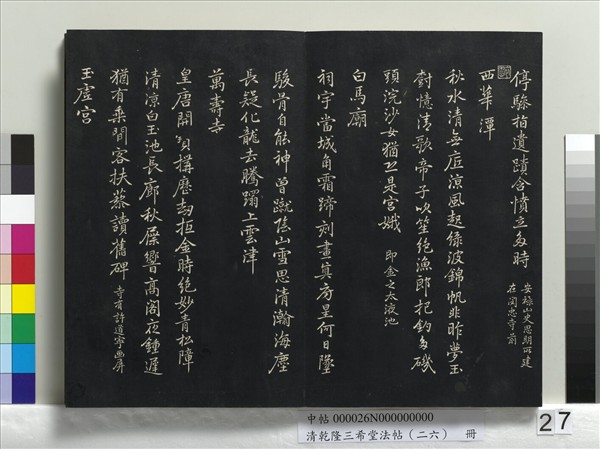 停驂拍遺蹟含憤立多時 安祿山史思明所建
在閔忠寺前
西華潭
秋水清無底涼風起綠波錦帆非昨夢玉
樹憶清歌帝子吹笙絕漁郎把釣多磯
頭浣沙女猶恐是宮娥 即金之太液池
白馬廟
祠宇當城角霜蹄刻畫真房星何日墮
駿骨自能神曽蹴陰山雪思清瀚海塵
長疑化龍去騰躍上雲津
萬壽寺
皇唐開實構歷劫抵金時絕妙青松障
清涼白玉池長廊秋屧響高閣夜鍾遲
猶有乘閒客扶藜讀舊碑 寺有許道寧畫屏
玉虛宮
申帖 000026N000000000
清乾隆三希堂法帖（二六） 冊
27